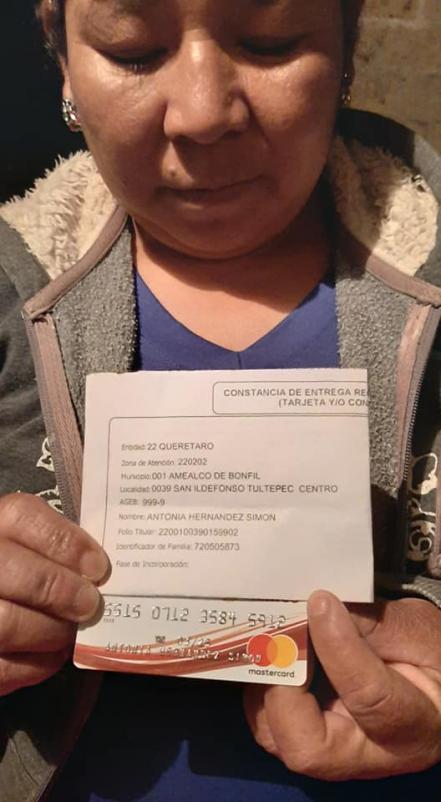 CONSTANCIA DE ENTREGA RE
(TARJETA Y/O CON
Entidad: 22 QUERETARO
Zona de Atención: 220202
Municipio: 001 AMEALCO DE BONFIL
Localidad: 0039 SAN ILDEFONSO TULTEPEC CENTRO
AGEB: 999-9
Nombre: ANTONIA HERNANDEZ SIMON
Folio Titular: 2200100390159902
Identificador de Familia: 720505873
Fase de Incorporación:
ANTONIA HERNANDEZ SIMON
mastercard